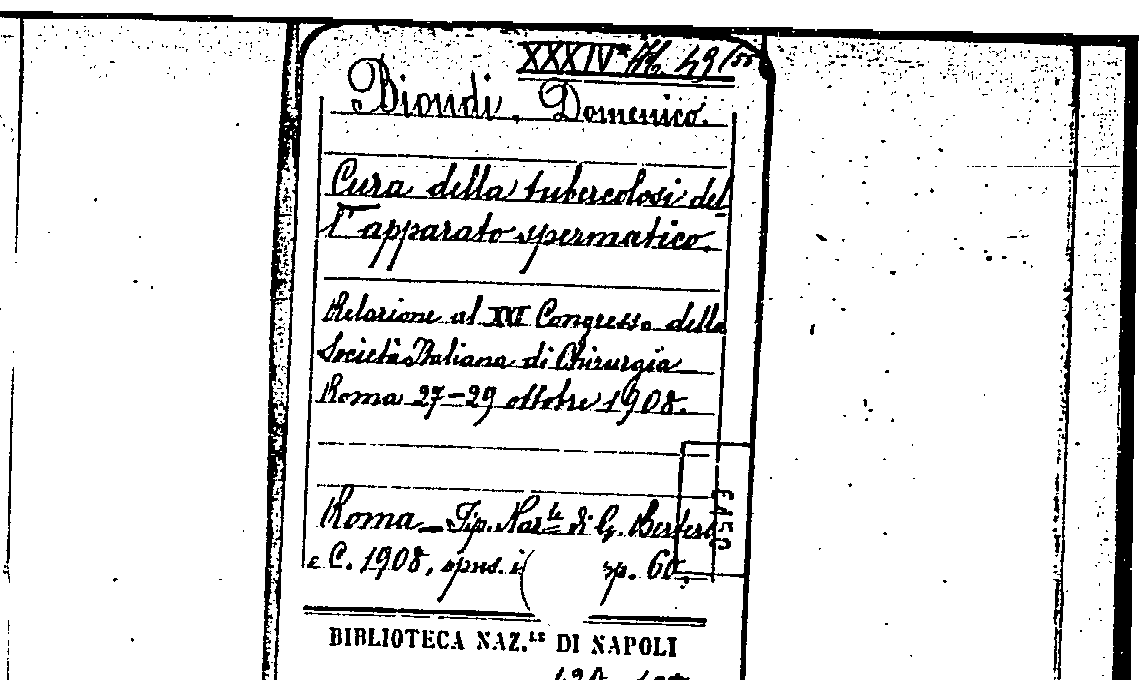 XXXIV 49
Biondi, Domenico.
Cura della tubercolosi del
l' apparato spermatico.
Relazione al XXI Congresso della
Società Italiana di Chirurgia
Roma 27-29 ottobre 1908.
Roma - Tip. Naz.le di G. Bertero
e C. 1908, opus. i p. 60.
BIBLIOTECA NAZ.LE DI NAPOLI